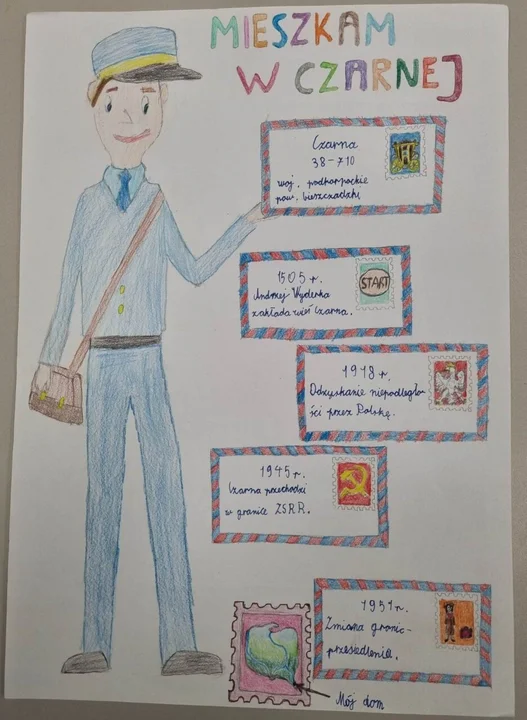 MIESZKAM
W CZARNEJ
Czarna
38-710
woj. podkarpackie
pow. bieszczadzki
1505 r.
Andrzej Wyderka
zakłada wieś Czarna.
START
1918 r.
Odzyskanie niepodległo-
ści przez Polskę.
1945 r.
Czarna przechodzi
w granice ZSRR.
1951 r.
Zmiana granic-
przesiedlenie.
Mój dom